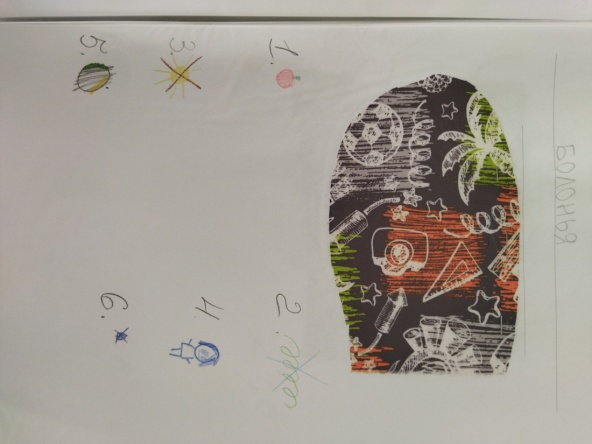 БОЛОНЬЯ
1. 2.
3. 4
5. 6.